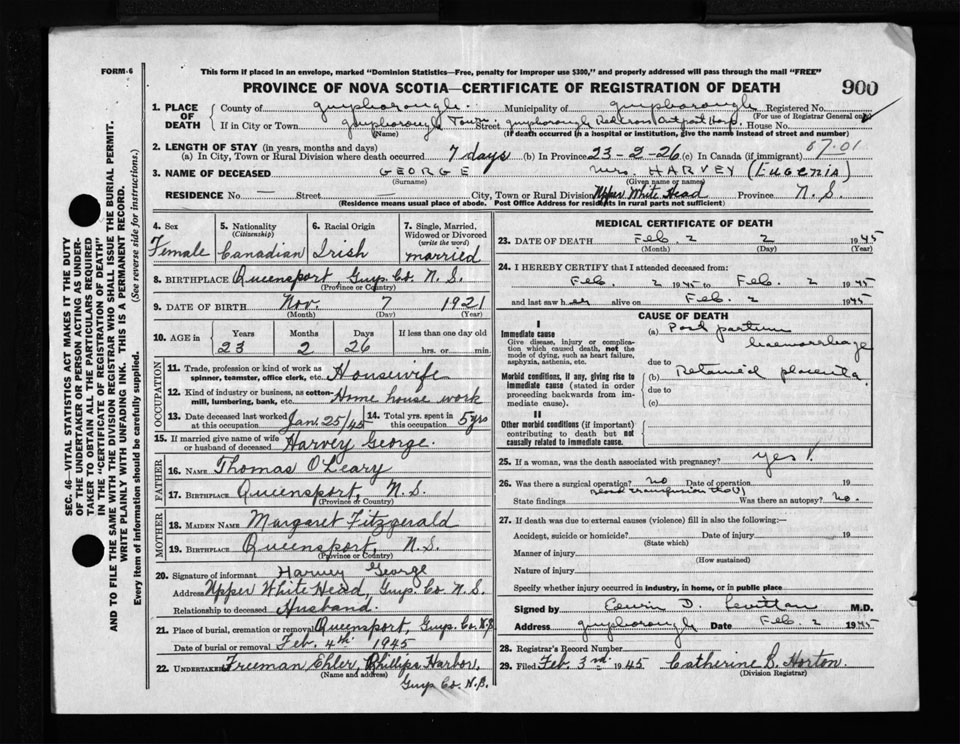 FORM-6
This form if placed in an envelope, marked "Dominion Statistics—Free, penalty for improper use $300," and properly addressed will pass through the mail "FREE"
PROVINCE OF NOVA SCOTIA—CERTIFICATE OF REGISTRATION OF DEATH
900
1. PLACE OF DEATH
County of Guysborough. Municipality of Guysborough Registered No.
(For use of Registrar General only)
If in City or Town Guysborough Town. Street Guysborough Red Cross Outpost Hosp. House No.
(Name) (If death occurred in a hospital or institution, give the name instead of street and number)
2. LENGTH OF STAY (in years, months and days)
(a) In City, Town or Rural Division where death occurred 7 days (b) In Province 23-2-26 (c) In Canada (if immigrant)
67.01
3. NAME OF DECEASED GEORGE Mrs. HARVEY (EUGENIA)
(Surname) (Given name or names)
RESIDENCE No. — Street City, Town or Rural Division Upper White Head Province N.S.
(Residence means usual place of abode. Post Office Address for residents in rural parts not sufficient)
4. Sex
Female
5. Nationality
(Citizenship)
Canadian
6. Racial Origin
Irish
7. Single, Married, Widowed or Divorced
(write the word)
married
8. BIRTHPLACE Queensport, Guys. Co. N.S.
(Province or Country)
9. DATE OF BIRTH Nov. 7 1921
(Month) (Day) (Year)
10. AGE in
Years Months Days If less than one day old
23 2 26 hrs. or min.
OCCUPATION
11. Trade, profession or kind of work as spinner, teamster, office clerk, etc. Housewife
12. Kind of industry or business, as cotton-mill, lumbering, bank, etc. Home house work
13. Date deceased last worked at this occupation Jan. 25/45
14. Total yrs. spent in this occupation 5 yrs
15. If married give name of wife or husband of deceased Harvey George.
FATHER
16. NAME Thomas O'Leary
17. BIRTHPLACE Queensport, N.S.
(Province or Country)
MOTHER
18. MAIDEN NAME Margaret Fitzgerald
19. BIRTHPLACE Queensport, N.S.
(Province or Country)
20. Signature of informant Harvey George
Address Upper White Head, Guys. Co. N.S.
Relationship to deceased Husband.
21. Place of burial, cremation or removal Queensport, Guys. Co. N.S.
Date of burial or removal Feb. 4th 1945
22. UNDERTAKER Freeman Ehler, Phillips Harbor,
(Name and address)
Guys. Co. N.S.
MEDICAL CERTIFICATE OF DEATH
23. DATE OF DEATH Feb. 2 2 1945
(Month) (Day) (Year)
24. I HEREBY CERTIFY that I attended deceased from:
Feb. 2 1945 to Feb. 2 1945
and last saw her alive on Feb. 2 1945
CAUSE OF DEATH
I
Immediate cause
Give disease, injury or complication which caused death, not the mode of dying, such as heart failure, asphyxia, asthenia, etc.
(a) Post partum haemorrhage
due to
Morbid conditions, if any, giving rise to immediate cause (stated in order proceeding backwards from immediate cause).
(b) Retained placenta.
due to
(c)
II
Other morbid conditions (if important) contributing to death but not causally related to immediate cause.
25. If a woman, was the death associated with pregnancy? yes
26. Was there surgical operation? no Date of operation 19
State findings blood transfusion Was there an autopsy? No.
27. If death was due to external causes (violence) fill in also the following:—
Accident, suicide or homicide? Date of injury 19
(State which)
Manner of injury
(How sustained)
Nature of injury
Specify whether injury occurred in industry, in home, or in public place
Signed by Edwin D. Levittan M.D.
Address Guysborough Date Feb. 2 1945
28. Registrar's Record Number
29. Filed Feb 3rd 1945 Catherine S. Horton.
(Division Registrar)
SEC. 46—VITAL STATISTICS ACT MAKES IT THE DUTY
OF THE UNDERTAKER OR PERSON ACTING AS UNDERTAKER TO OBTAIN ALL THE PARTICULARS REQUIRED
IN THE "CERTIFICATE OF REGISTRATION OF DEATH"
AND TO FILE THE SAME WITH THE DIVISION REGISTRAR WHO SHALL ISSUE THE BURIAL PERMIT.
WRITE PLAINLY WITH UNFADING INK. THIS IS A PERMANENT RECORD.
Every item of information should be carefully supplied. (See reverse side for instructions.)